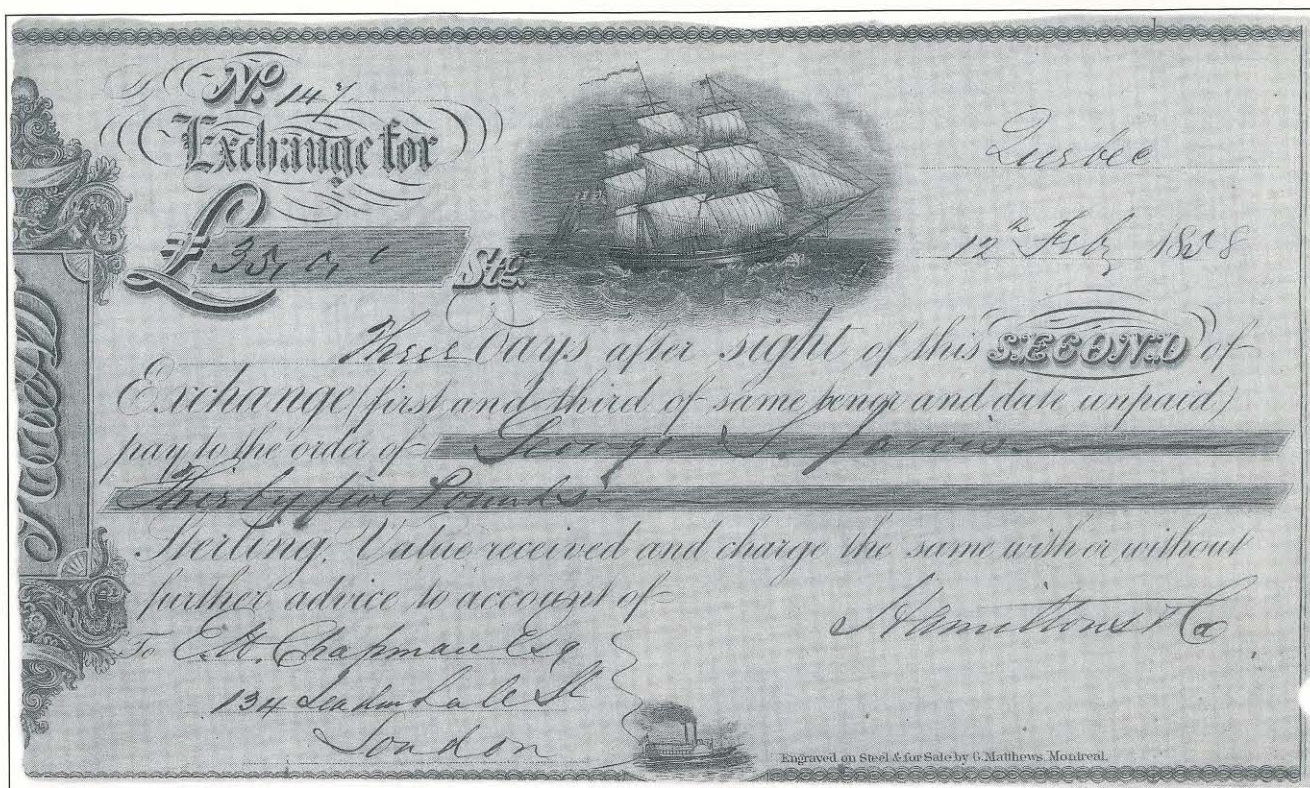 No. 147
Exchange for
Quebec
£ 35,0,0 Stg.
12th Feby 1858
Three Days after sight of this SECOND of
Exchange (first and third of same tenor and date unpaid)
pay to the order of George S. Jarvis
Thirty five Pounds
Sterling. Value received and charge the same with or without
further advice to account of
Hamiltons & Co
To E.H. Chapman Esq
134 Leadenhall St
London
Engraved on Steel & for Sale by G. Matthews, Montreal.